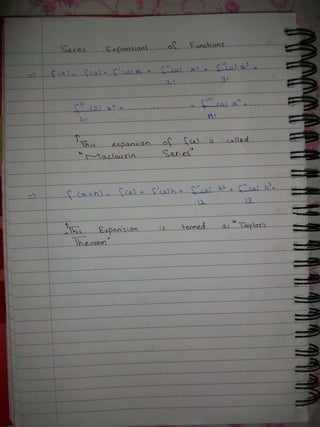 Series Expansions of Functions
⇒ f(x) = f(0) + f'(0)x + f''(0) x² + f'''(0) x³ +
2! 3!
f''''(0) x⁴ + .............. + f⁽ⁿ⁾(0) xⁿ + ..........
4! n!
↑ This expansion of f(x) is called
"Maclaurin Series"
⇒ f(x+h) = f(x) + f'(x)h + f''(x) h² + f'''(x) h³ +
L2 L3
↑ This Expansion is termed as "Taylor's
Theorem"